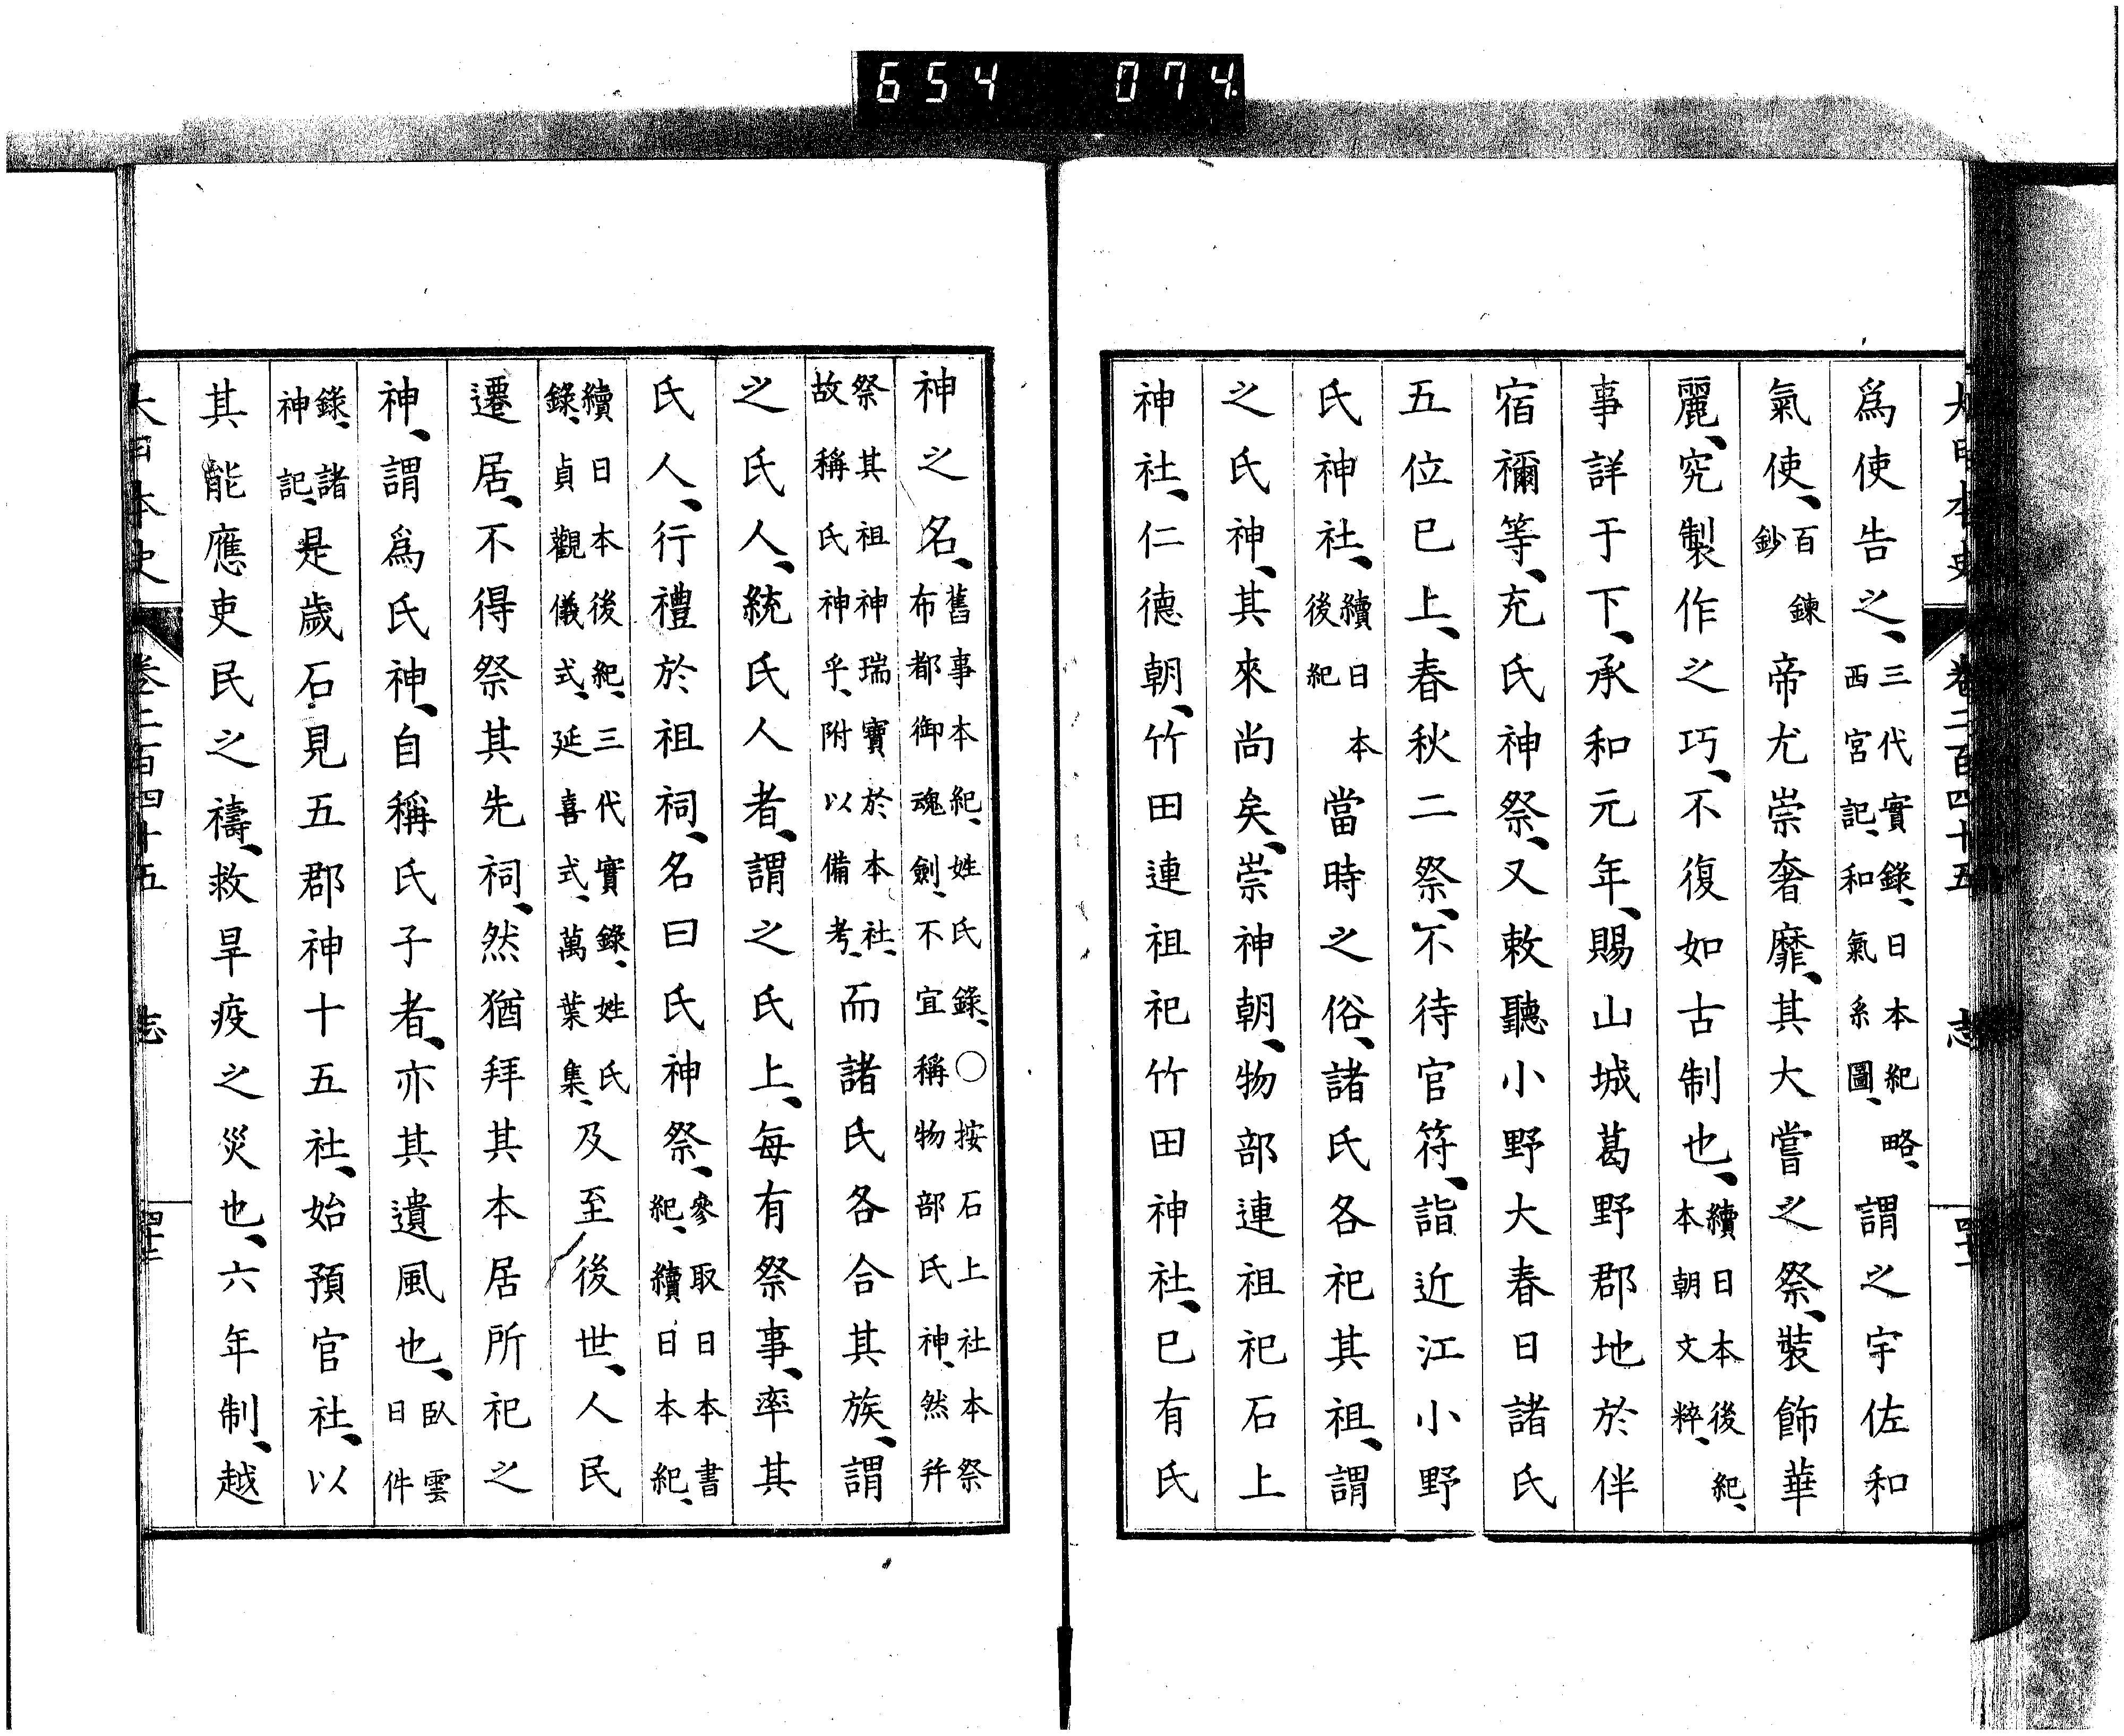 654 074
大日本史 卷二百四十五 志
爲使告之、三代實錄、日本紀略、西宮記、和氣系圖、謂之宇佐和
氣使、百鍊鈔帝尤崇奢靡、其大嘗之祭、裝飾華
麗、究製作之巧、不復如古制也、續日本後紀、本朝文粹、
事詳于下、承和元年、賜山城葛野郡地於伴
宿禰等、充氏神祭、又敕聽小野大春日諸氏
五位已上、春秋二祭、不待官符、詣近江小野
氏神社、續日本後紀當時之俗、諸氏各祀其祖、謂
之氏神、其來尚矣、崇神朝、物部連祖祀石上
神社、仁德朝、竹田連祖祀竹田神社、已有氏
神之名、舊事本紀、姓氏錄、○按石上社本祭布都御魂劍、不宜稱物部氏神、然幷
祭其祖神瑞寶於本社、故稱氏神乎、附以備考、而諸氏各合其族、謂
之氏人、統氏人者、謂之氏上、每有祭事、率其
氏人、行禮於祖祠、名曰氏神祭、參取日本書紀、續日本紀、
續日本後紀、三代實錄、姓氏錄、貞觀儀式、延喜式、萬葉集、及至後世、人民
遷居、不得祭其先祠、然猶拜其本居所祀之
神、謂爲氏神、自稱氏子者、亦其遺風也、臥雲日件
錄、諸神記、是歲石見五郡神十五社、始預官社、以
其能應吏民之禱、救旱疫之災也、六年制、越
大日本史 卷二百四十五 志 四十二